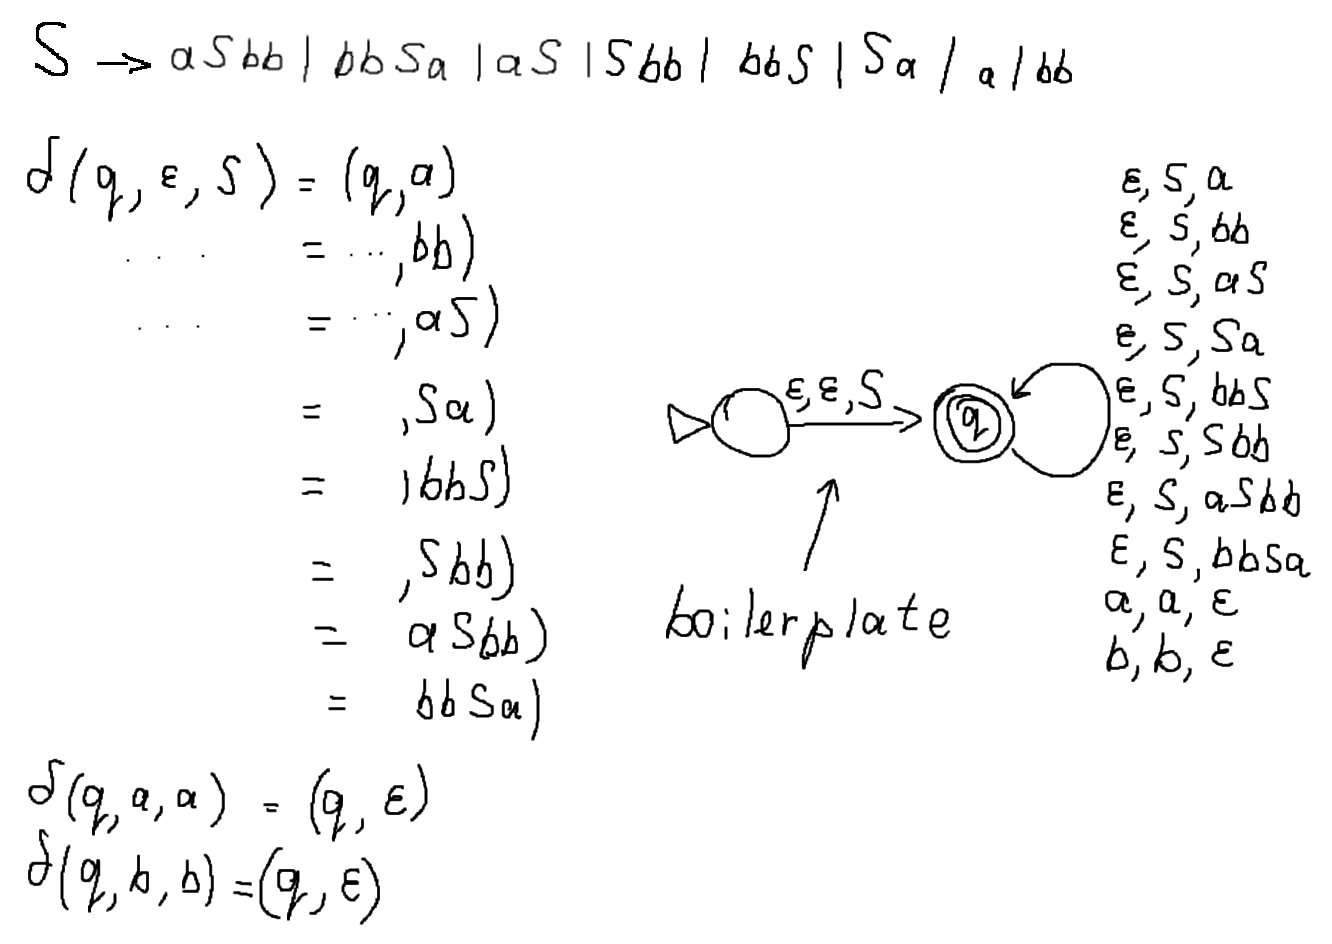 S → aSbb | bbSa | aS | Sbb | bbS | Sa / a / bb
δ(q, ε, S) = (q, a)
... = ..., bb)
... = ..., aS)
= , Sa)
= , bbS)
= , Sbb)
= aSbb)
= bbSa)
δ(q, a, a) = (q, ε)
δ(q, b, b) = (q, ε)
ε, ε, S
q
boilerplate
ε, S, a
ε, S, bb
ε, S, aS
ε, S, Sa
ε, S, bbS
ε, S, Sbb
ε, S, aSbb
ε, S, bbSa
a, a, ε
b, b, ε